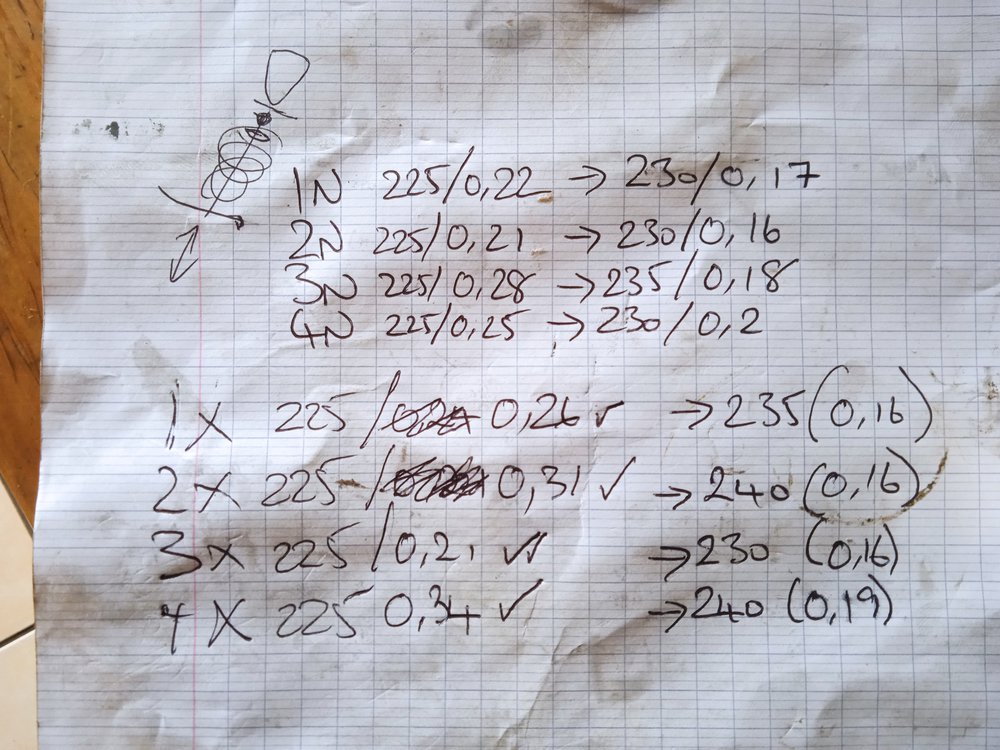 1N 225/0,22 → 230/0,17
2N 225/0,21 → 230/0,16
3N 225/0,28 → 235/0,18
4N 225/0,25 → 230/0,2
1X 225/ 0,26 ✓ → 235(0,16)
2X 225/ 0,31 ✓ → 240(0,16)
3X 225/0,21 ✓✓ → 230 (0,16)
4X 225 0,34 ✓ → 240 (0,19)